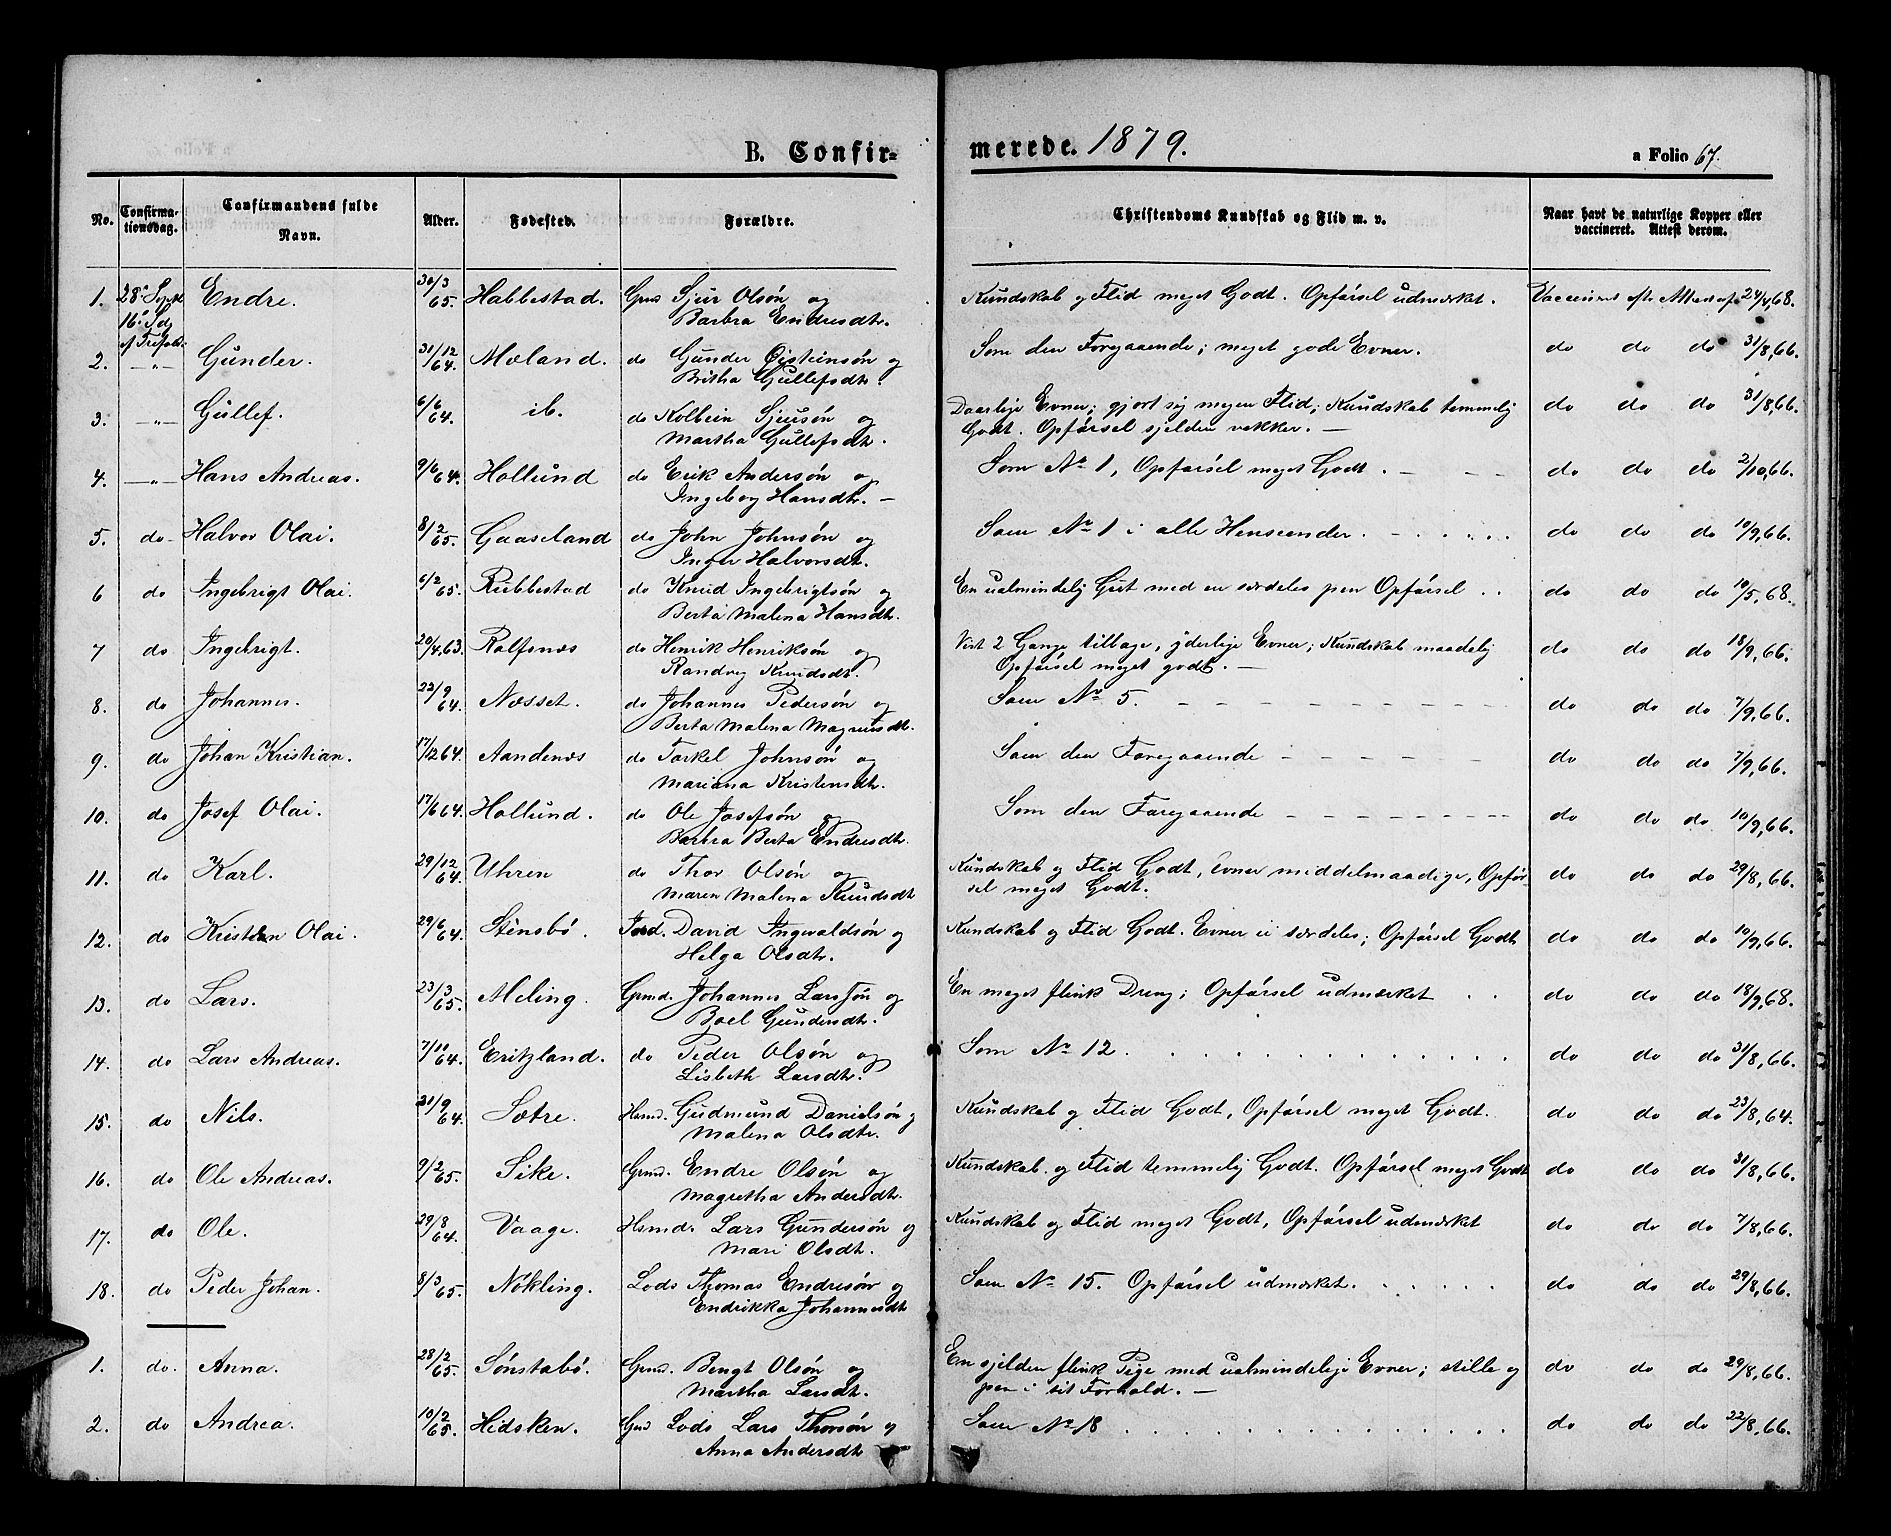 B. Confir-
merede. 1879.
a Folio 67.
No.
Confirma-
tionsdag.
Confirmandens fulde
Navn.
Alder.
Fødested.
Forældre.
Christendoms Kundskab og Flid m. v.
Naar havt de naturlige Kopper eller
vaccineret. Attest derom.
1. 28 Sept Endre. 30/3 65. Habbestad. Gmd Sjur Olsøn og Kundskab og Flid meget Godt. Opførsel udmærket. Vaccineret efter Attest af 24/4,68.
16 Sdg Barbra Endresdtr.
ef Trefold.
2. —„— Gunder. 31/12 64. Moland. do Gunder Øisteinsøn og Som den Foregaaende; meget gode Evner. do do do 31/8,66.
Britha Gullefsdtr.
3. —„— Gullef. 6/6 64. ib. do Kolbein Sjursøn og Daarlige Evner; gjort sig megen Flid; Kundskab temmelig do do do 31/8,66.
Martha Gullefsdtr. Godt. Opførsel sjelden vakker. —
4. —„— Hans Andreas. 9/6 64. Hollund do Erik Andersøn og Som No 1, Opførsel meget Godt. do do do 2/10,66.
Ingeborg Hansdtr. —
5. do Halvor Olai. 8/2 65. Gaaseland do John Johnsøn og Som No 1 i alle Henseender. do do do 10/9,66.
Inger Halvorsdtr.
6 do Ingebrigt Olai. 6/2 65. Rubbestad do Knud Ingebrigtsøn og En ualmindelig Gut med en særdeles pen Opførsel do do do 10/5,68.
Berta Malena Hansdtr.
7 do Ingebrigt. 20/4,63. Rolfsnæs do Henrik Henriksøn og Vist 2 Gange tilbage, yderlige Evner; Kundskab maadelig do do do 18/9,66.
Randvey Knudsdtr. Opførsel meget godt. —
8. do Johannes. 22/9 64. Næsset. do Johannes Pedersøn og Som No 5. do do do 7/9,66.
Berta Malena Magnusdtr.
9. do Johan Kristian. 17/12 64. Aandenæs do Torkel Johnsøn og Som den Foregaaende do do do 7/9,66.
Mariana Kristensdtr.
10. do Josef Olai. 17/6 64. Hollund. do Ole Josefsøn og Som den Foregaaende do do do 10/9,66.
Barbra Berta Endresdtr.
11. do Karl. 29/12 64. Uhren do Thor Olsøn og Kundskab og Flid Godt, Evner middelmaadige, Opfør- do do do 29/8,66.
Maren Malena Knudsdt sel meget Godt.
12. do Kristen Olai. 29/6 64. Stensbø. David Ingvaldsøn og Kundskab og Flid Godt. Evner ei særdeles; Opførsel Godt do do do 10/9,66.
Helga Olsdtr.
13. do Lars. 23/3 65. Meling. Gmd. Johannes Larssøn og En meget flink Dreng; Opførsel udmærket do do do 18/9,68.
Boel Gundersdtr.
14. do Lars Andreas. 7/10 64. Eritzland. do Peder Olsøn og Som No 12. do do do 31/8,66.
Lisbeth Larsdtr.
15. do Nils. 21/9 64. Sætre. Hsmd. Gudmund Danielsøn og Kundskab og Flid Godt, Opførsel meget Godt. do do do 23/8,64.
Malena Olsdtr.
16. do Ole Andreas. 9/2 65. Sike. Gmd. Endre Olsøn og Kundskab og Flid temmelig Godt. Opførsel meget Godt do do do 31/8,66.
Magretha Andersdtr.
17. do Ole. 29/8 64. Vaage. Hsmd. Lars Gundersøn og Kundskab og Flid meget Godt, Opførsel udmærket do do do 7/8,66.
Mari Olsdtr.
18. do Peder Johan. 8/3 65. Nøkling. Lods Thomas Endresøn og Som No 15. Opførsel udmærket. do do do 29/8,66.
Endrikka Johannesdtr
1. do. Anna. 28/2 65. Sønstabø. Gmd. Bengt Olsøn og En sjelden flink Pige med ualmindelige Evner; stille og do do do 29/8,66.
Martha Larsdtr. pen i sit Forhold. —
2. do Andrea. 10/2 65. Hidsken. Gmd Lods Lars Thorsøn og Som No 18 do do do 22/8,66.
Anna Andersdtr